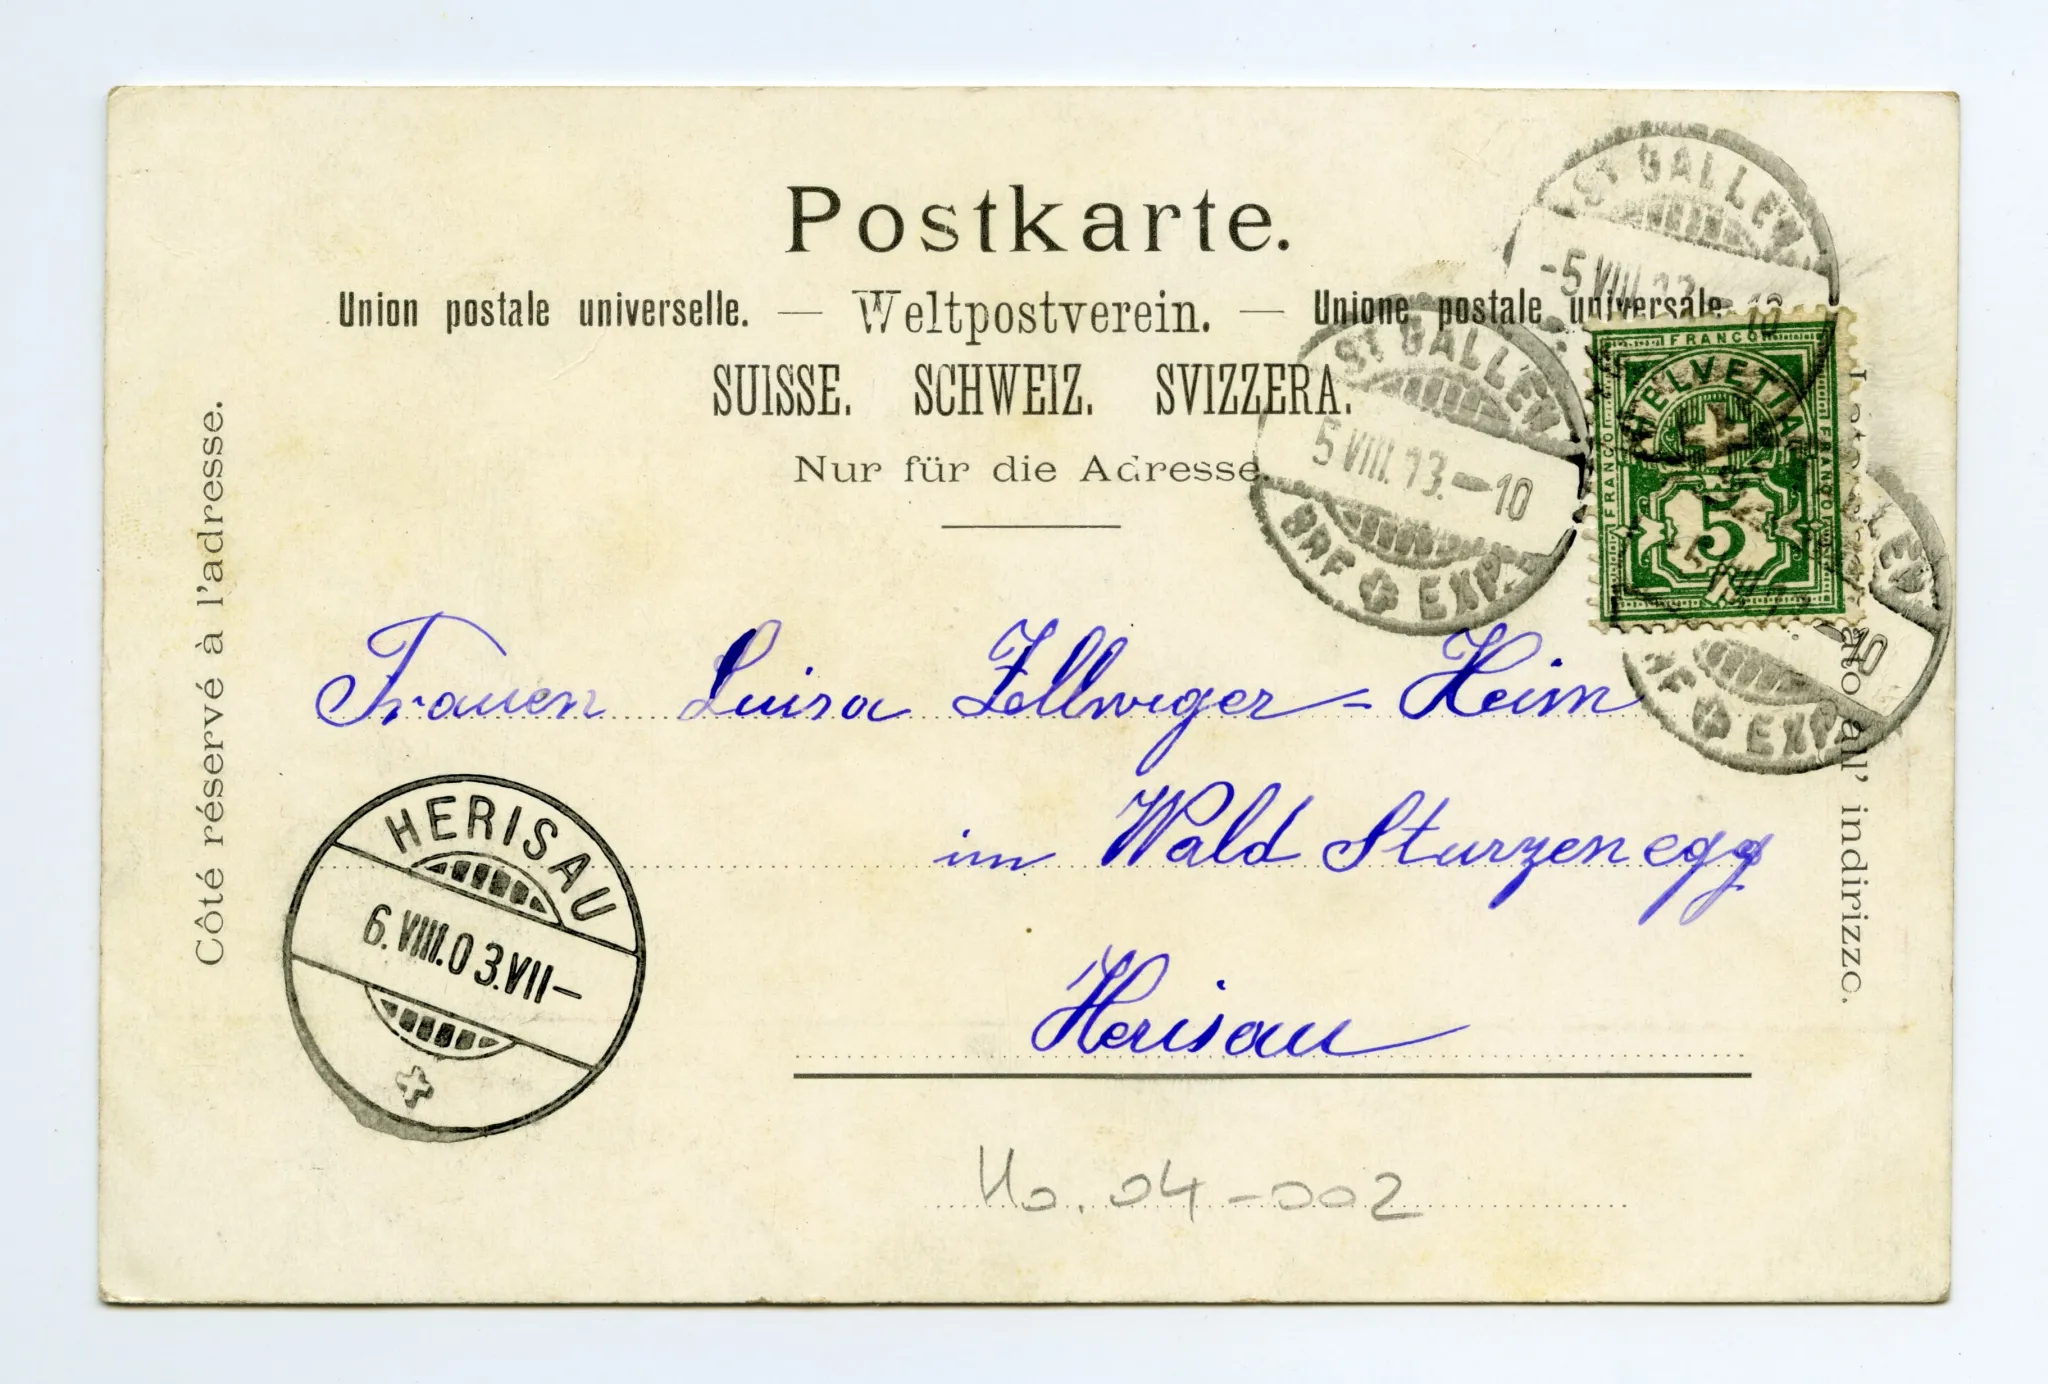 Postkarte.
Union postale universelle. — Weltpostverein. — Unione postale universale
SUISSE. SCHWEIZ. SVIZZERA.
Nur für die Adresse.
Côté réservé à l'adresse.
ato all' indirizzo.
ST GALLEN
-5 VIII 13 10
ST GALLEN
5 VIII. 13.-10
BRF EXP.
FRANCO
HELVETIA
FRANCO
FRANCO
5
LLEN
10
RF EXP.
Frauen Luisa Zellweger-Heim
im Wald Sturzenegg
Herisau
HERISAU
6.VIII.03.VII-
Ho. 04-002